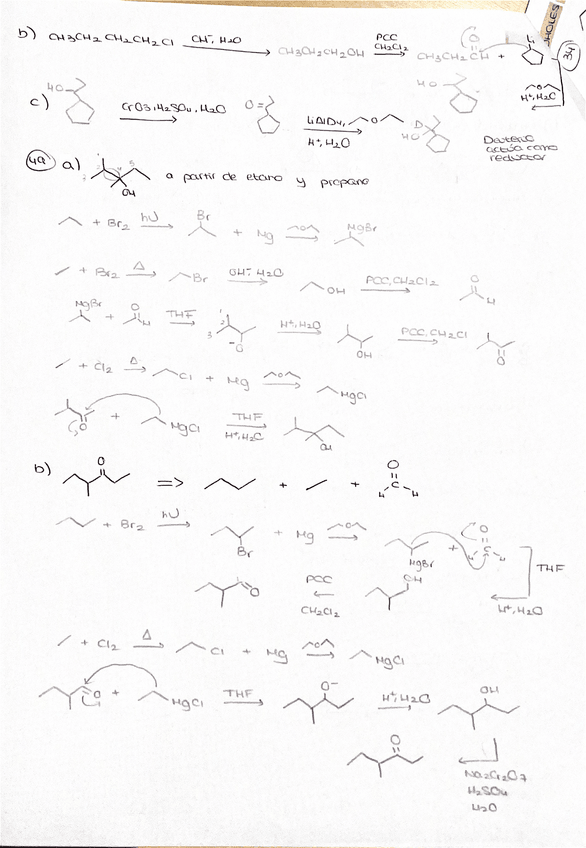 b) CH3CH2CH2CH2Cl OH⁻, H2O CH3CH2CH2OH PCC CH2Cl2 CH3CH2CH + Li 34
O
HO H⁺, H2O
c) HO CrO3, H2SO4, H2O O= LiAlD4, O D HO
H⁺, H2O
Deuterio actúa como reductor
4a a) OH a partir de etano y propano
+ Br2 hν Br + Mg O MgBr
+ Br2 Δ Br OH⁻ H2O OH PCC, CH2Cl2 O H
MgBr + O H THF 1 2 3 O H⁺, H2O OH PCC, CH2Cl O
+ Cl2 Δ Cl + Mg O MgCl
O + MgCl THF H⁺, H2O OH
b) O => + + O C H H
+ Br2 hν Br + Mg O MgBr + O C H H THF
O PCC CH2Cl2 OH H⁺, H2O
+ Cl2 Δ Cl + Mg O MgCl
O + MgCl THF O⁻ H⁺, H2O OH
O
Na2Cr2O7
H2SO4
H2O